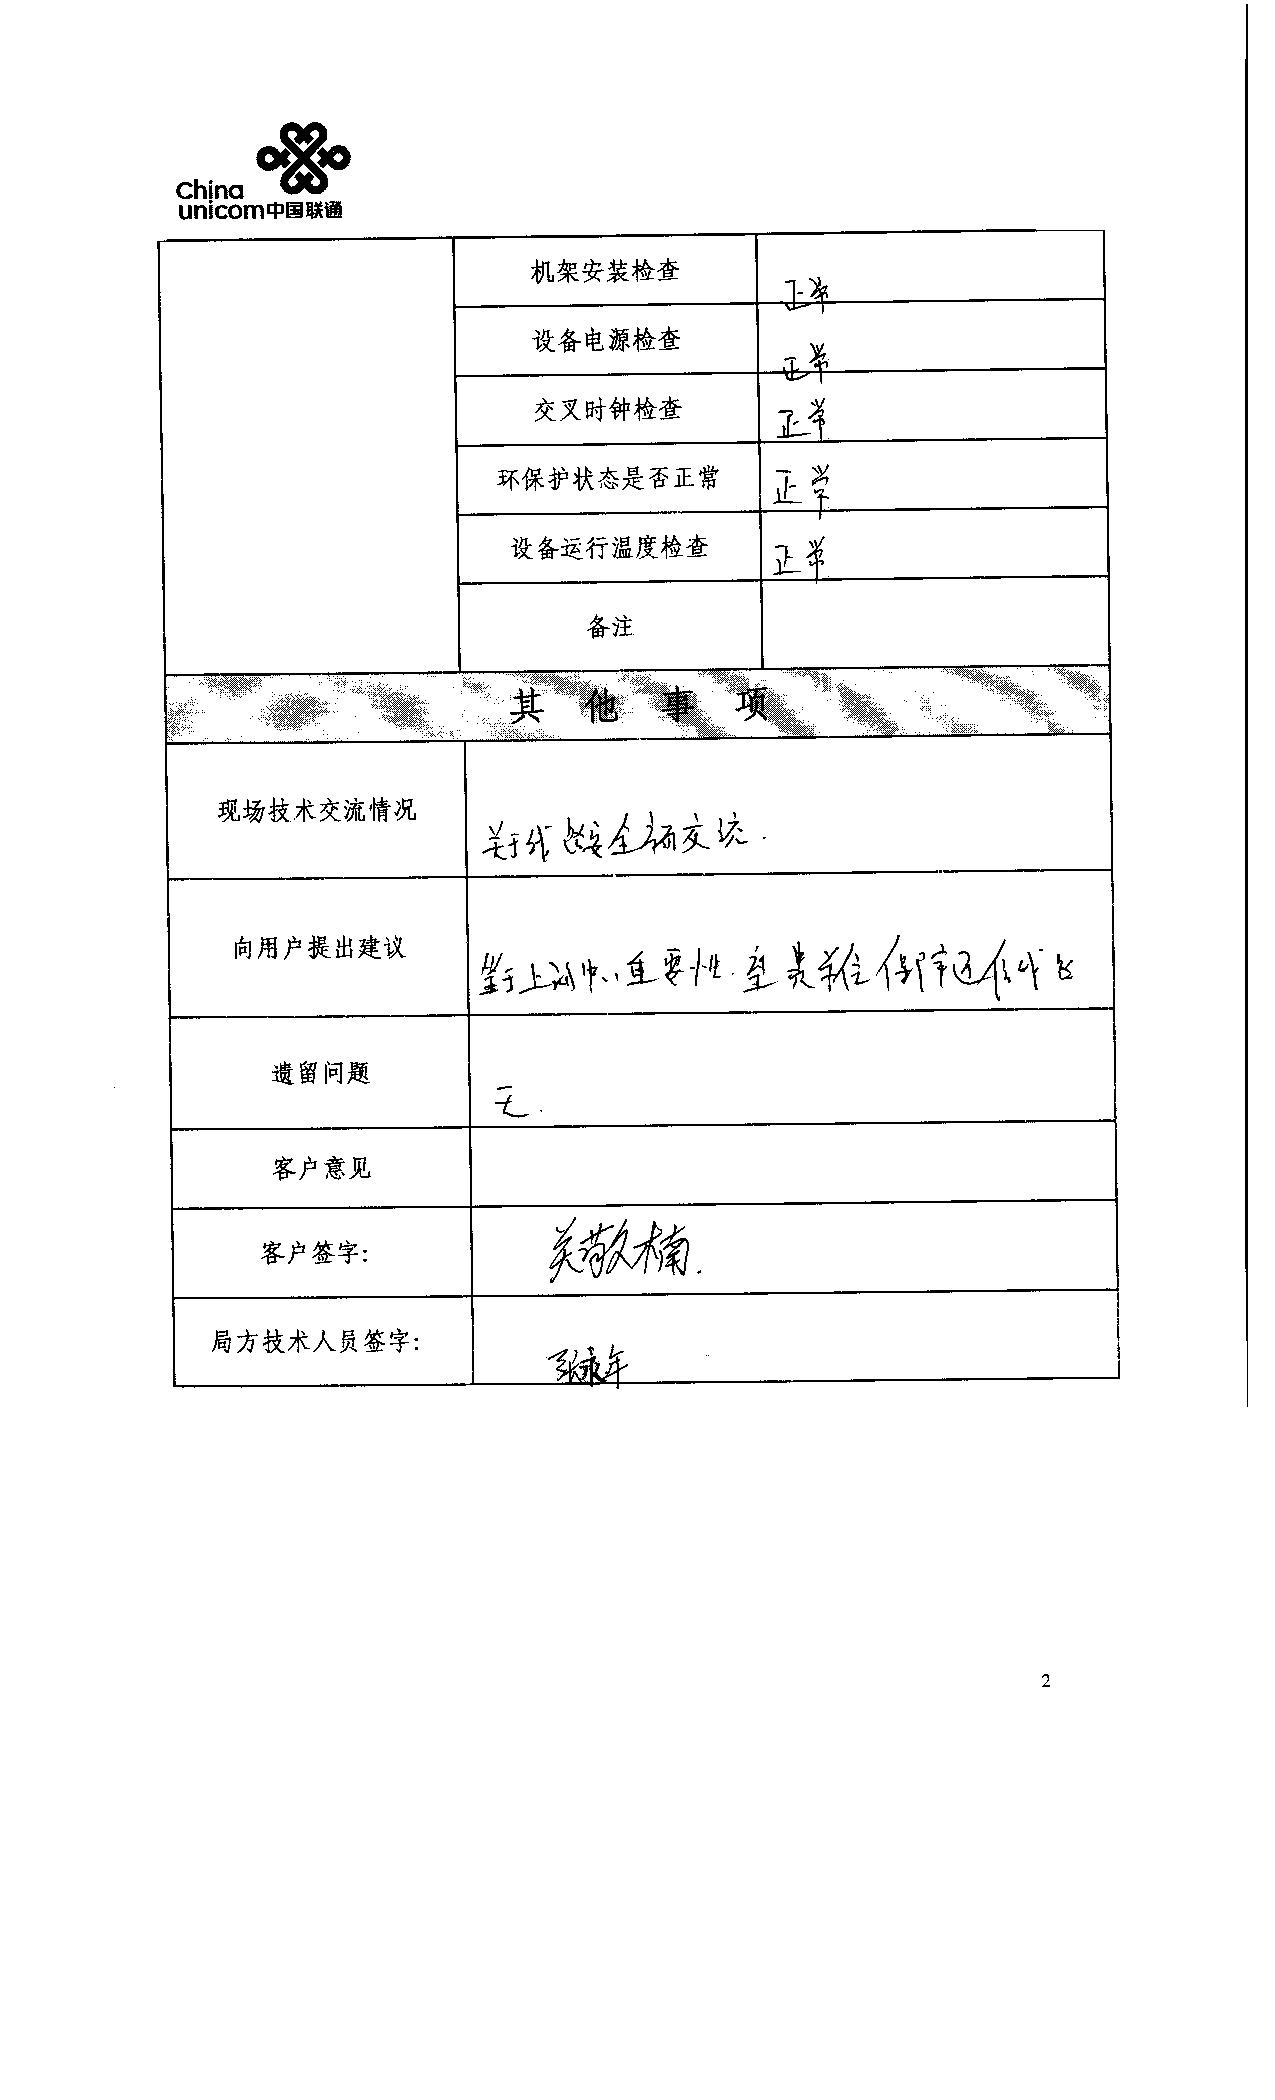 China
unicom中国联通
机架安装检查 正常
设备电源检查 正常
交叉时钟检查 正常
环保护状态是否正常 正常
设备运行温度检查 正常
备注
其他事项
现场技术交流情况 关于线路安全方面交流.
向用户提出建议 鉴于上述中心重要性.望贵单位保障通信线路
遗留问题 无.
客户意见
客户签字: 关敬楠.
局方技术人员签字: 张永年
2